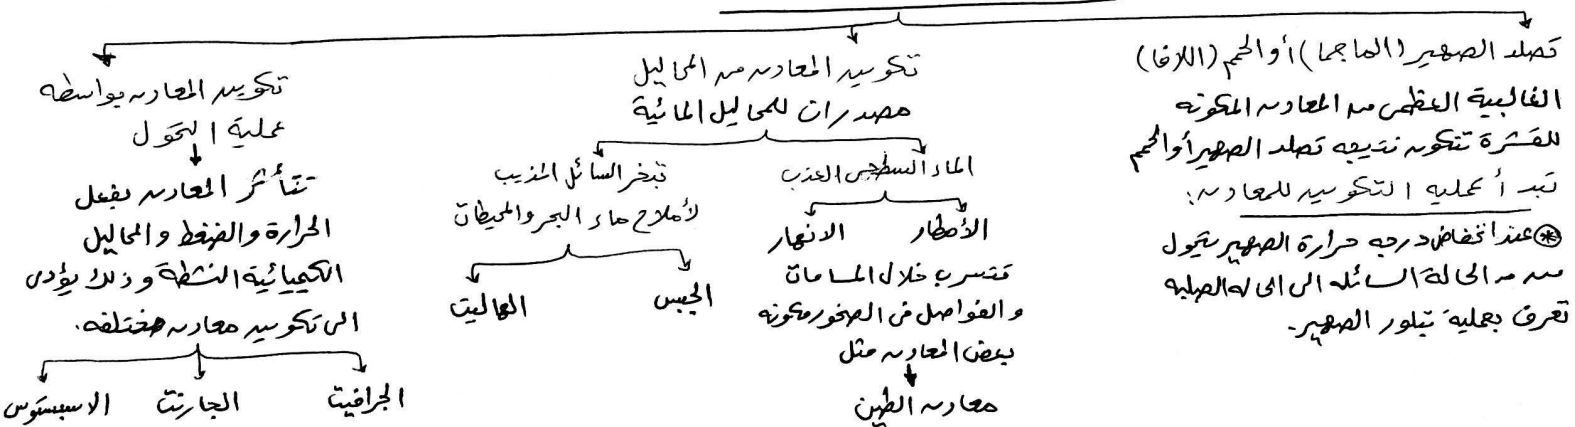 تصلد الصهير (الماجما) أو الحمم (اللافا)
الغالبية العظمى من المعادن المكونه
للقشرة تتكون نتيجه تصلد الصهير أو الحمم
تبدأ عمليه التكوين للمعادن:
* عند انخفاض درجه حرارة الصهير يتحول
من الحالة السائله الى الحاله الصلبه
تعرف بعملية تبلور الصهير.
تكوين المعادن من المحاليل
مصدران للمحاليل المائية
الماء السطحى العذب
الأمطار
الانهار
فتسرب خلال المسامات
والفواصل فى الصخور مكونه
بعض المعادن مثل
معادن الطين
تبخر السائل المذيب
لأملاح ماء البحر والمحيطات
الجبس
الهاليت
تكوين المعادن بواسطه
عملية التحول
تتأثر المعادن بفعل
الحرارة والضغط والمحاليل
الكيميائية النشطة وذلك يؤدى
الى تكوين معادن مختلفه.
الجرافيت
الجارنت
الاسبستوس